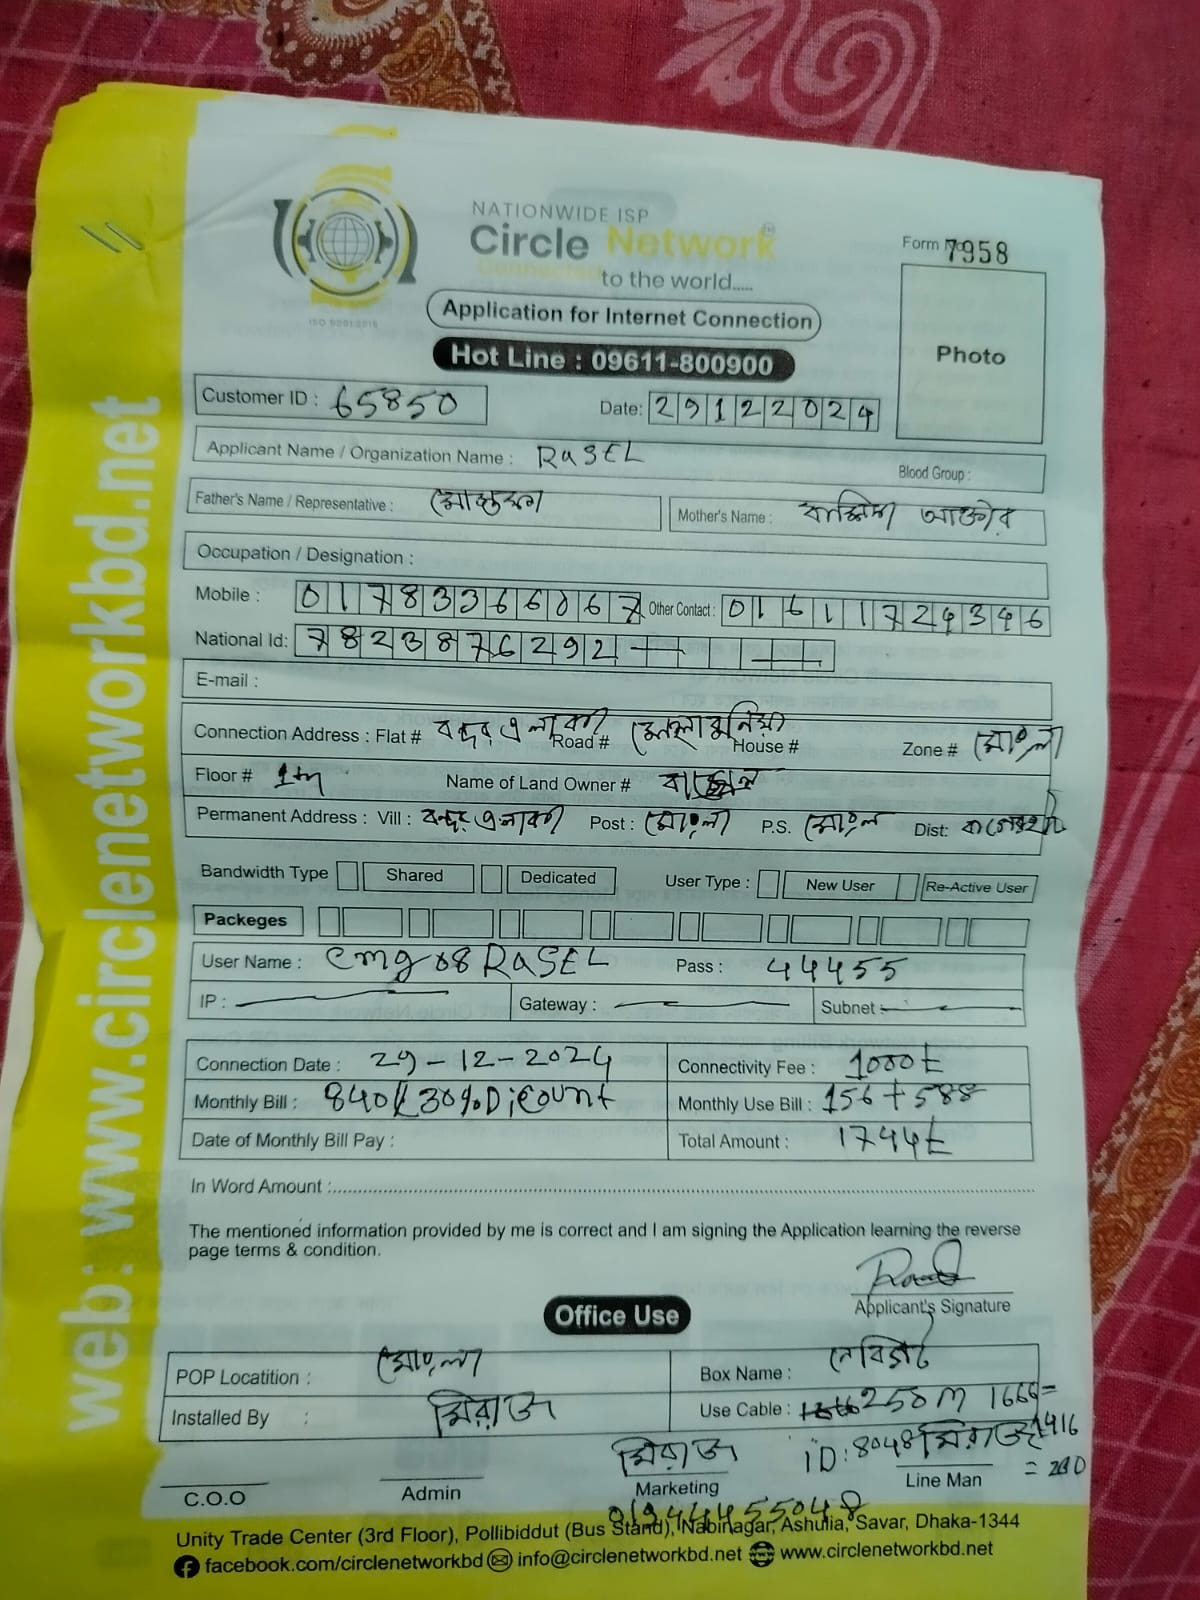 NATIONWIDE ISP
Circle Network
Connected
to the world.....
ISO 9001:2015
Form No 7958
Application for Internet Connection
Hot Line : 09611-800900
Photo
Customer ID : 65850
Date: 29122024
Applicant Name / Organization Name : RaSEL
Blood Group :
Father's Name / Representative :
Mother's Name : আক্তার
Occupation / Designation :
Mobile : 01783366067 Other Contact : 01611724346
National Id: 7823876292
E-mail :
Connection Address : Flat # বন্দর এলাকা Road # House # Zone # মোংলা
Floor # 1tm Name of Land Owner #
Permanent Address : Vill : বন্দর এলাকা Post : মোংলা P.S. মোংলা Dist: বাগেরহাট
Bandwidth Type Shared Dedicated User Type : New User Re-Active User
Packeges
User Name : cmg08RaSEL Pass : 44455
IP : Gateway : Subnet :
Connection Date : 29-12-2024 Connectivity Fee : 1000t
Monthly Bill : 840/ 30% Dicount Monthly Use Bill : 156+588
Date of Monthly Bill Pay : Total Amount : 1744t
In Word Amount :
The mentioned information provided by me is correct and I am signing the Application learning the reverse
page terms & condition.
Applicant's Signature
Office Use
POP Locatition : মোংলা Box Name :
Installed By : মিরাজ Use Cable : 258m 1666=
1416
মিরাজ iD: 8048 মিরাজ
C.O.O Admin Marketing Line Man
Unity Trade Center (3rd Floor), Pollibiddut (Bus Stand), Nabinagar, Ashulia, Savar, Dhaka-1344
facebook.com/circlenetworkbd info@circlenetworkbd.net www.circlenetworkbd.net
web: www.circlenetworkbd.net